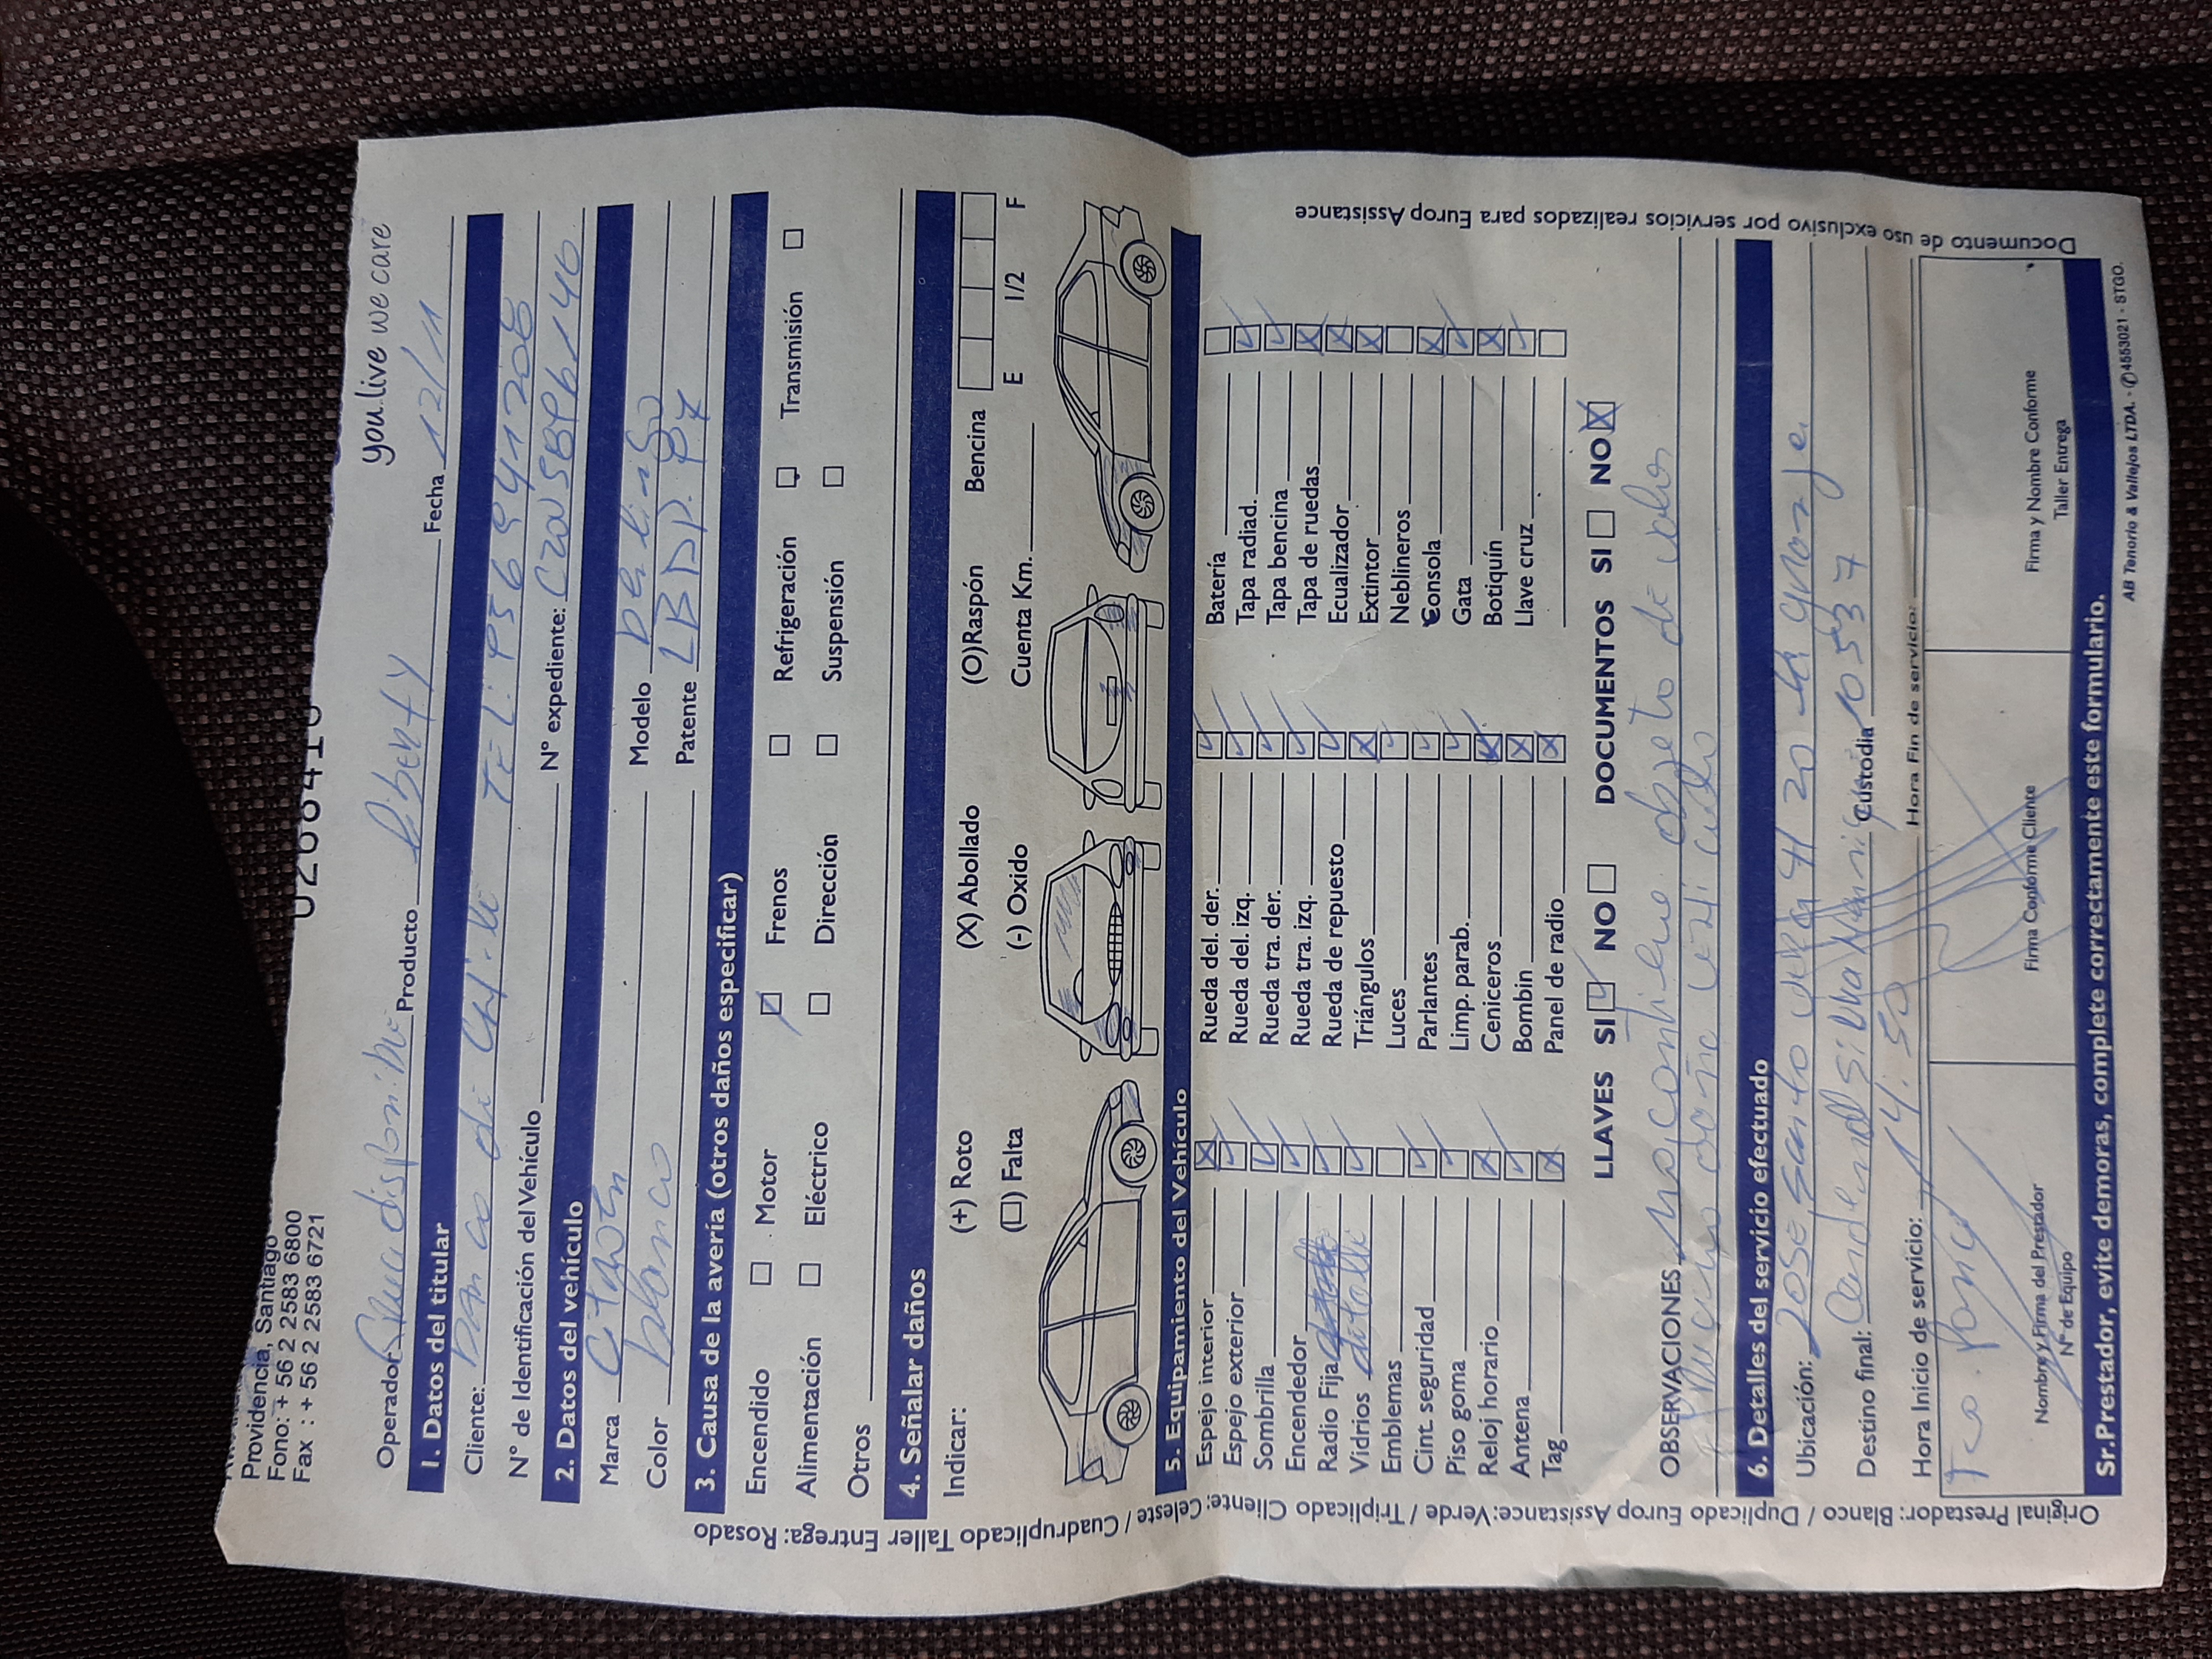 Providencia, Santiago
Fono: + 56 2 2583 6800
Fax : + 56 2 2583 6721
you live we care
Operador Producto liberty Fecha 12/11
1. Datos del titular
Cliente: Banco di Chi.li TEL:
N° de Identificación del Vehículo N° expediente:
2. Datos del vehículo
Marca Modelo Berlingo
Color blanco Patente
3. Causa de la avería (otros daños especificar)
Encendido Motor Frenos Refrigeración Transmisión
Alimentación Eléctrico Dirección Suspensión
Otros
4. Señalar daños
Indicar: (+) Roto (X) Abollado (O)Raspón Bencina
(□) Falta (-) Oxido Cuenta Km. E 1/2 F
5. Equipamiento del Vehículo
Espejo interior Rueda del. der. Batería
Espejo exterior Rueda del. izq. Tapa radiad.
Sombrilla Rueda tra. der. Tapa bencina
Encendedor Rueda tra. izq. Tapa de ruedas
Radio Fija Rueda de repuesto Ecualizador
Vidrios Triángulos Extintor
Emblemas Luces Neblineros
Cint. seguridad Parlantes Consola
Piso goma Limp. parab. Gata
Reloj horario Ceniceros Botiquín
Antena Bombin Llave cruz
Tag Panel de radio
LLAVES SI NO DOCUMENTOS SI NO
OBSERVACIONES objeto di valor
6. Detalles del servicio efectuado
Ubicación: JOSE santo
Destino final: Custodia 10537
Hora Inicio de servicio: 14:50 Hora Fin de servicio:
Nombre y Firma del Prestador
N° de Equipo
Firma Conforme Cliente
Firma y Nombre Conforme
Taller Entrega
Sr.Prestador, evite demoras, complete correctamente este formulario.
AB Tenorio & Vallejos LTDA. - ✆4553021 - STGO.
Original Prestador: Blanco / Duplicado Europ Assistance:Verde / Triplicado Cliente: Celeste / Cuadruplicado Taller Entrega: Rosado
Documento de uso exclusivo por servicios realizados para Europ Assistance